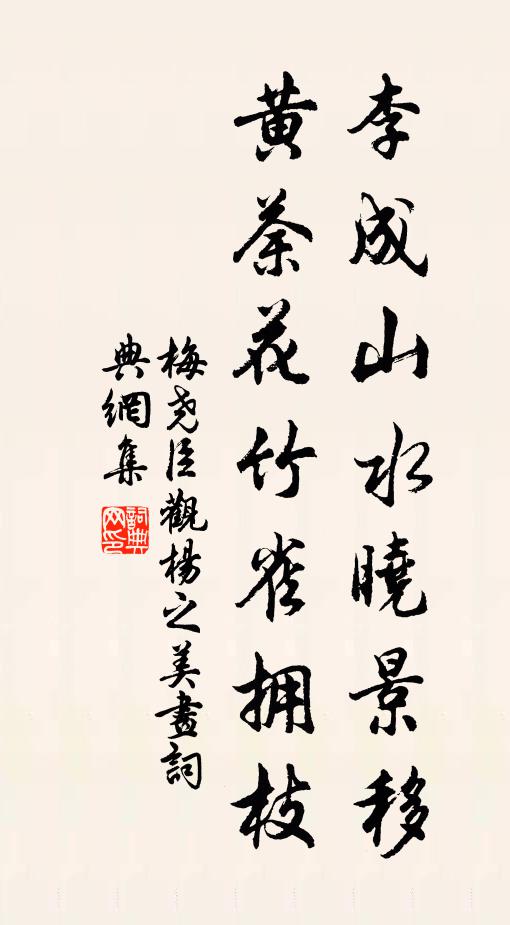 李成山水曉景移
黄荃花竹雀拥枝
梅尧臣觀楊之美畫詞
典網集
詞典
网印